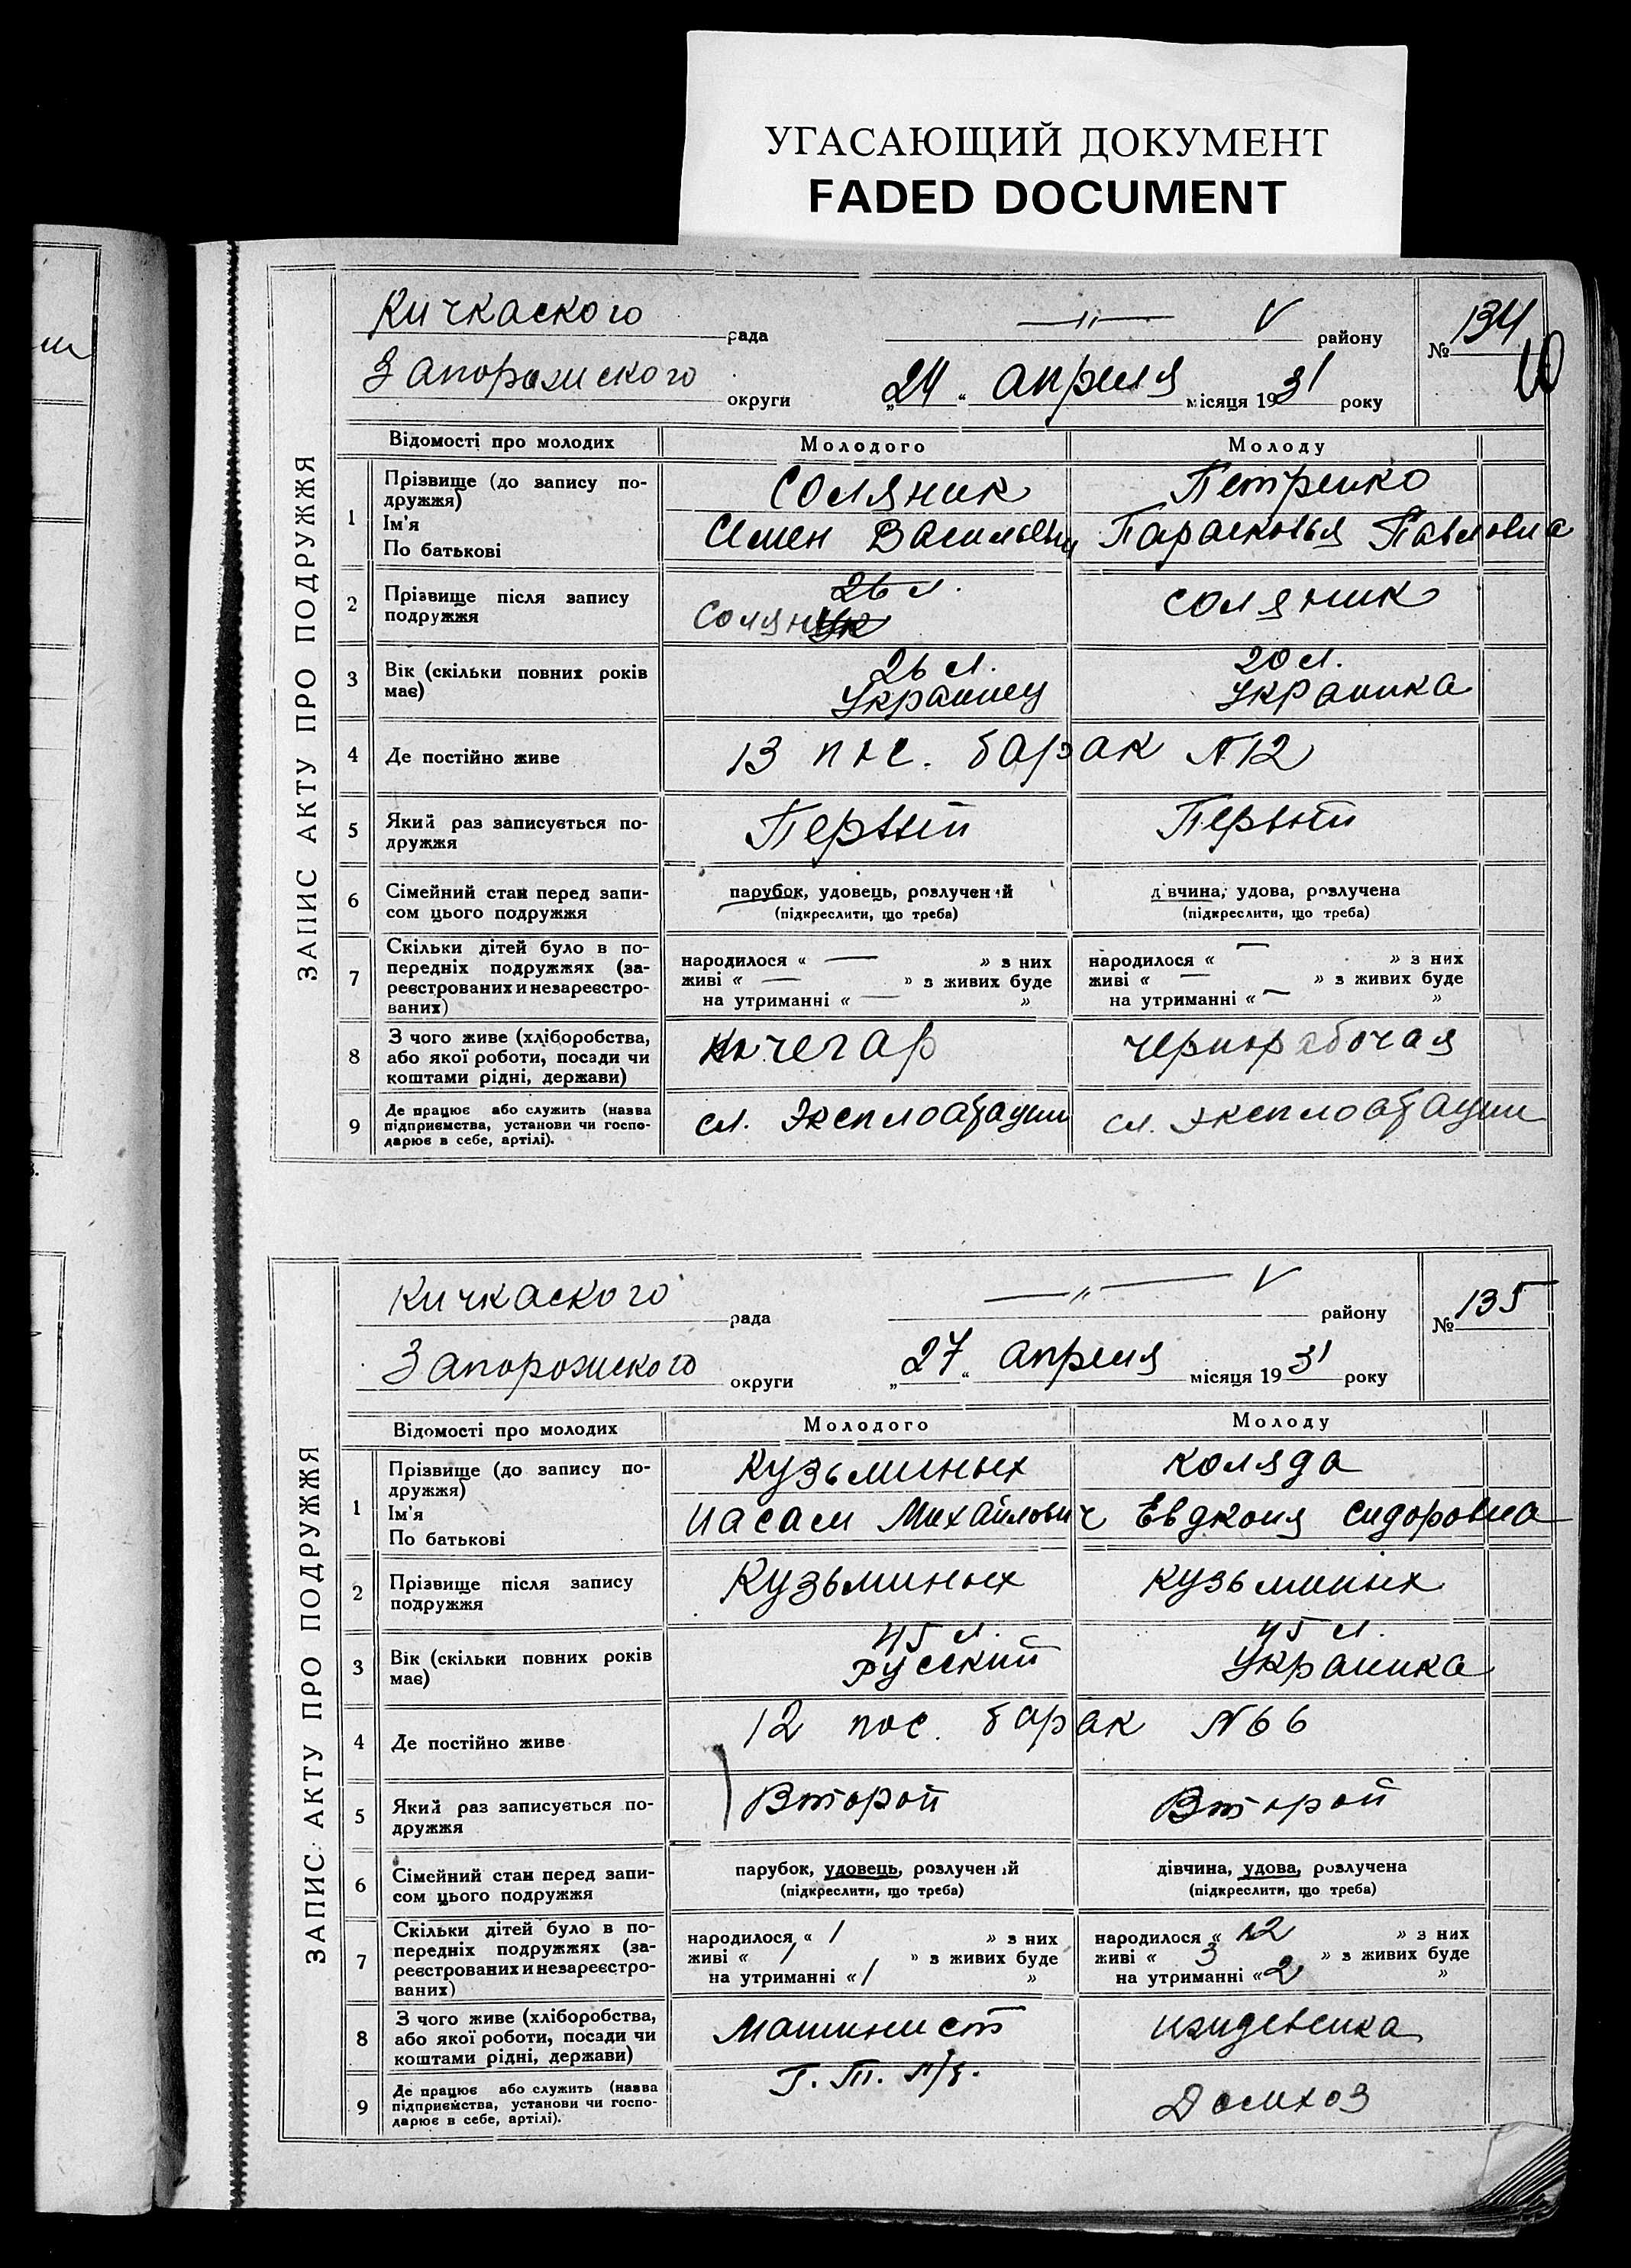 УГАСАЮЩИЙ ДОКУМЕНТ
FADED DOCUMENT
ЗАПИС АКТУ ПРО ПОДРУЖЖЯ
Кичкаского рада —"— V району № 134
10
Запорожского округи „24“ апреля місяця 1931 року
Відомості про молодих Молодого Молоду
1 Прізвище (до запису по-
дружжя)
Ім'я
По батькові
Соляник Петренко
Семен Васильевич Парасковья Павловна
2 Прізвище після запису
подружжя
26 л.
Соляник Соляник
3 Вік (скільки повних років
має)
26 л. 20 л.
Украинец Украинка
4 Де постійно живе 13 пос. барак N12
5 Який раз записується по-
дружжя
Первый Первый
6 Сімейний стан перед запи-
сом цього подружжя
парубок, удовець, розлучений дівчина, удова, розлучена
(підкреслити, що треба) (підкреслити, що треба)
7 Скільки дітей було в по-
передніх подружжях (за-
реєстрованих и незареєстро-
ваних)
народилося « — » з них народилося « — » з них
живі « — » з живих буде живі « — » з живих буде
на утриманні « — » на утриманні « — »
8 З чого живе (хліборобства,
або якої роботи, посади чи
коштами рідні, держави)
Кочегар чернорабочая
9 Де працює або служить (назва
підприємства, установи чи госпо-
дарює в себе, артілі).
сл. Эксплоатации сл. эксплоатации
ЗАПИС АКТУ ПРО ПОДРУЖЖЯ
Кичкаского рада —"— V району № 135
Запорожского округи „27“ апреля місяця 1931 року
Відомості про молодих Молодого Молоду
1 Прізвище (до запису по-
дружжя)
Ім'я
По батькові
Кузьминых Коляда
Михайлович Евдкоия Сидоровна
2 Прізвище після запису
подружжя
Кузьминых Кузьминых
3 Вік (скільки повних років
має)
45 л. 45 л.
Русский Украинка
4 Де постійно живе 12 пос. барак N66
5 Який раз записується по-
дружжя
Второй Второй
6 Сімейний стан перед запи-
сом цього подружжя
парубок, удовець, розлучений дівчина, удова, розлучена
(підкреслити, що треба) (підкреслити, що треба)
7 Скільки дітей було в по-
передніх подружжях (за-
реєстрованих и незареєстро-
ваних)
народилося « 1 » з них народилося « 12 » з них
живі « 1 » з живих буде живі « 3 » з живих буде
на утриманні « 1 » на утриманні « 2 »
8 З чого живе (хліборобства,
або якої роботи, посади чи
коштами рідні, держави)
Машинист иждевенка
9 Де працює або служить (назва
підприємства, установи чи госпо-
дарює в себе, артілі).
Домхоз